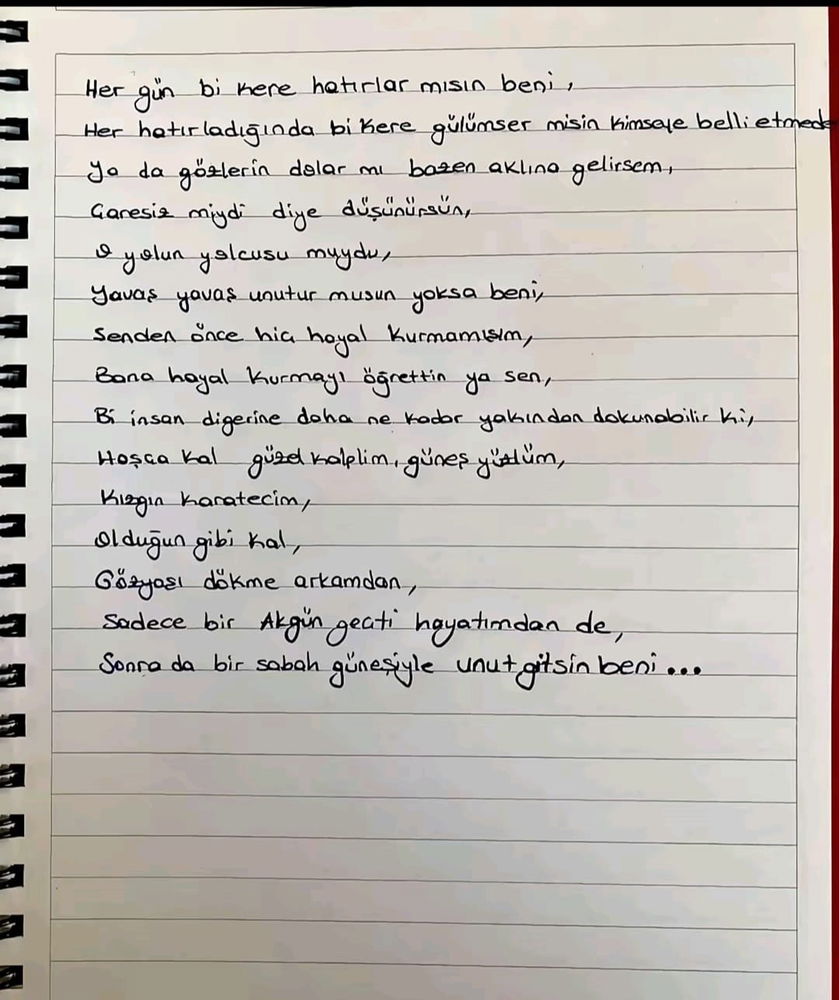 Her gün bi kere hatırlar mısın beni,
Her hatırladığında bi kere gülümser misin kimseye belli etmede
Ya da gözlerin dolar mı bazen aklına gelirsem,
Çaresiz miydi diye düşünürsün,
O yolun yolcusu muydu,
Yavaş yavaş unutur musun yoksa beni,
Senden önce hiç hayal kurmamışım,
Bana hayal kurmayı öğrettin ya sen,
Bi insan digerine daha ne kadar yakından dokunabilir ki,
Hoşça kal güzel kalplim, güneş yüzlüm,
Kızgın karatecim,
Olduğun gibi kal,
Gözyaşı dökme arkamdan,
Sadece bir Akgün geçti hayatımdan de,
Sonra da bir sabah güneşiyle unut gitsin beni...